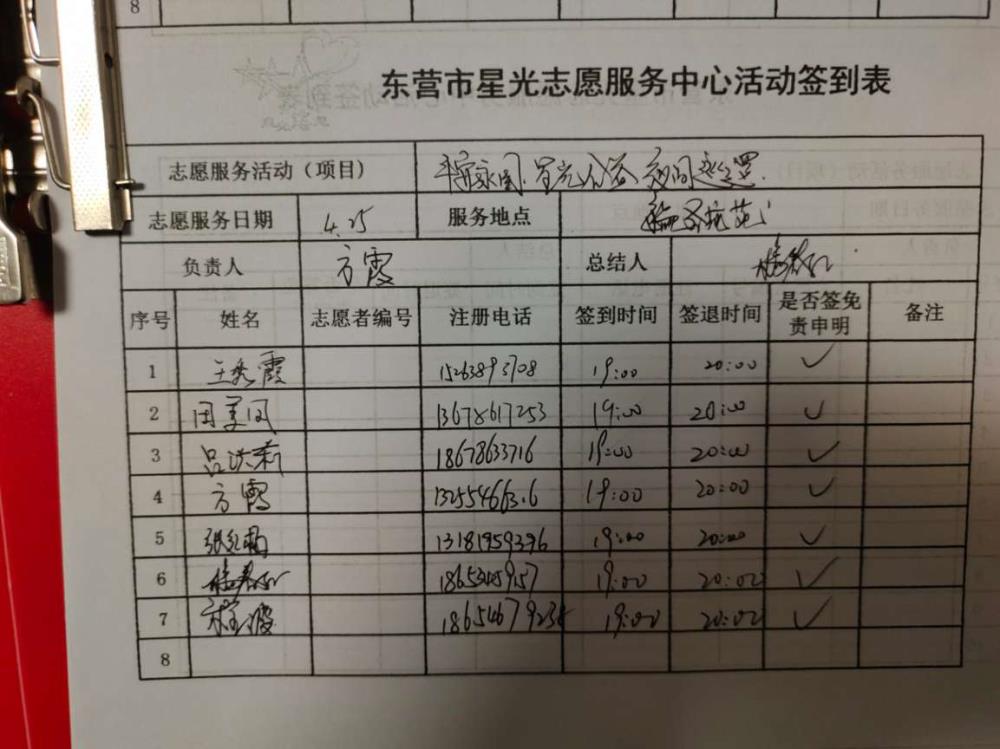 8
东营市星光志愿服务中心活动签到表
志愿服务活动（项目） 星光公益夜间巡逻
志愿服务日期 4.25 服务地点
负责人 方霞 总结人
序号 姓名 志愿者编号 注册电话 签到时间 签退时间 是否签免责申明 备注
1 王秀霞 15263893708 19:00 20:00 ✓
2 田美凤 13678617253 19:00 20:00 ✓
3 吕洪莉 18678633716 19:00 20:00 ✓
4 方霞 19:00 20:00 ✓
5 13181959396 19:00 20:00 ✓
6 19:00 20:00 ✓
7 19:00 20:00 ✓
8